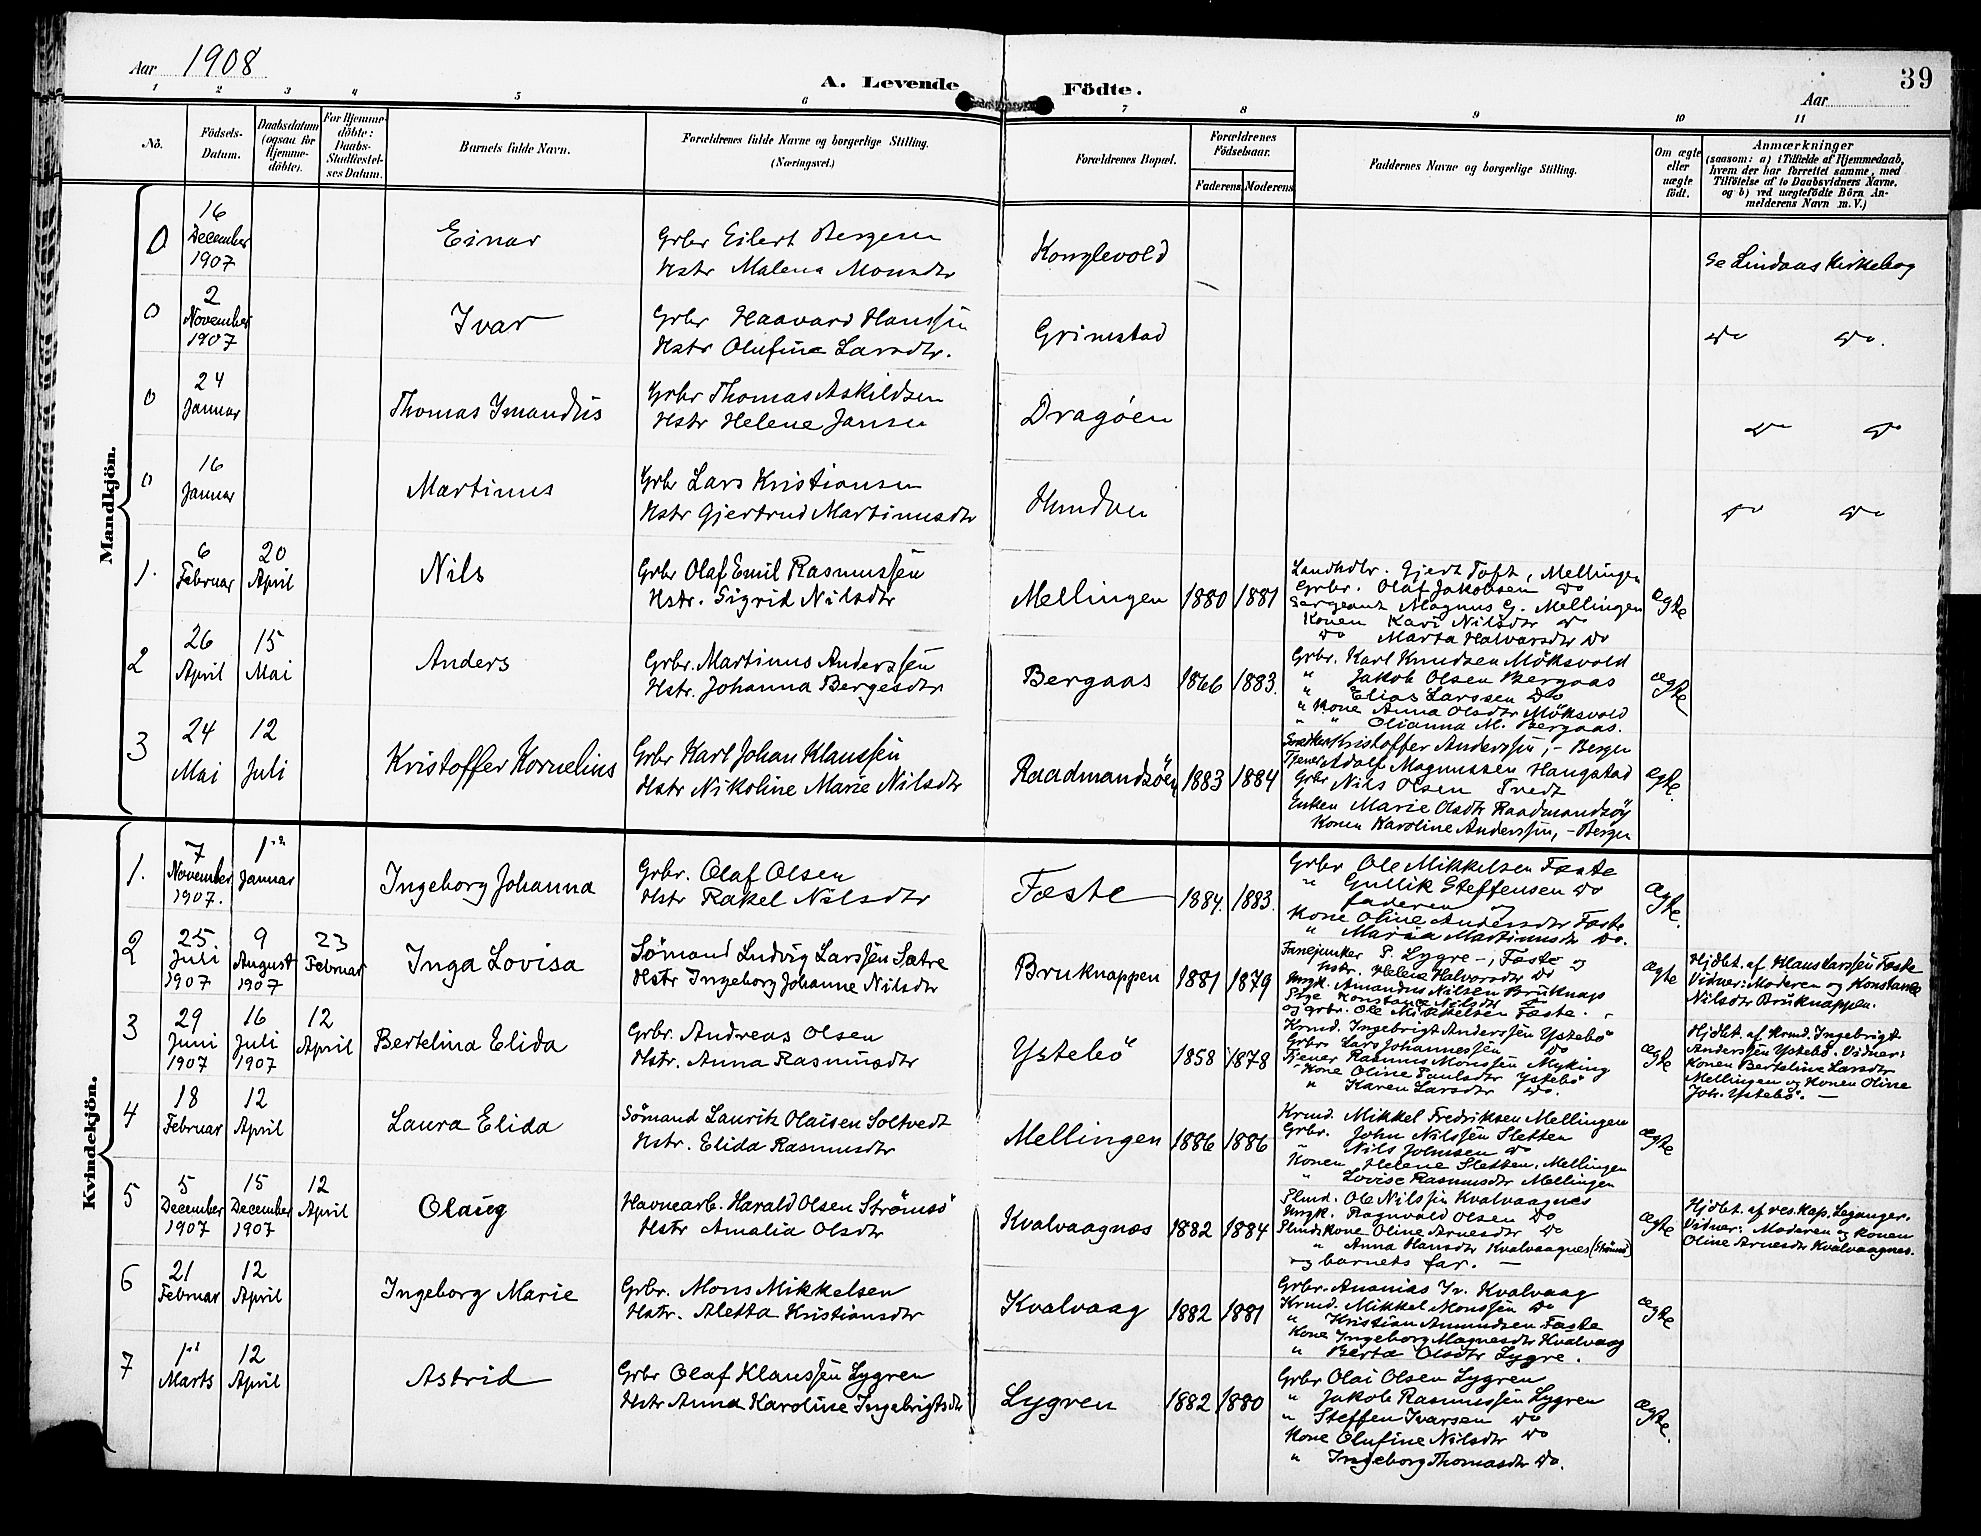 Aar 1908
A. Levende Födte.
39
Aar
1 2 3 4 5 6 7 8 9 10 11
No.
Födsels-Datum.
Daabsdatum (ogsaa for Hjemme-döbte).
For Hjemme-döbte: Daabs-Stadfæstel-ses Datum.
Barnets fulde Navn.
Forældrenes fulde Navne og borgerlige Stilling.
(Næringsvei.)
Forældrenes Bopæl.
Forældrenes Födselsaar.
Faderens. Moderens.
Faddernes Navne og borgerlige Stilling.
Om ægte eller uægte födt.
Anmærkninger
(saasom: a) i Tilfælde af Hjemmedaab,
hvem der har forrettet samme, med
Tilföielse af to Daabsvidners Navne.
og b) ved uægtefödte Börn An-
melderens Navn m. V.)
Mandkjön.
0 16 December 1907 Einar
Grbr Eilert Bergesen
Hstr Malena Monsdtr
Konglevold
Se Lindaas Kirkebog
0 2 November 1907 Ivar
Grbr Haavard Hanssen
Hstr Olufine Larsdtr.
Grimstad
Do Do.
0 24 Januar Thomas Ymandus
Grbr Thomas Askildsen
Hstr Helene Jansen
Dragöen
Do Do
0 16 Januar Martinus
Grbr Lars Kristiansen
Hstr Gjertrud Martinusdtr
Hundven
Do Do
1. 6 Februar 20 April Nils
Grbr Olaf Emil Rasmussen
Hstr. Sigrid Nilsdtr
Mellingen 1880 1881
Landhdlr. Gjert Toft, Mellingen
Grbr. Olaf Jakobsen Do
Sergeant Magnus G. Mellingen
Konen Kari Nilsdtr Do
Do Marta Halvarsdtr Do
ægte
2 26 April 15 Mai Anders
Grbr. Martinus Anderssen
Hstr. Johanna Bergesdtr
Bergaas 1866 1883.
Grbr. Karl Knudsen Möksvold
" Jakob Olsen Bergaas
" Elias Larssen Do
" Kone Anna Olsdtr Möksvold
" " Olianna M. Bergaas.
ægte
3 24 Mai 12 Juli Kristoffer Kornelius
Grbr Karl Johan Klaussen
Hstr Nikoline Marie Nilsdtr
Raadmandsöen 1883 1884
Kristoffer Anderssen, - Bergen
Tjener Adolf Magnussen Haugstad
Grbr Nils Olsen Tvedt
Enken Marie Olsdtr Raadmandsöy
Konen Karoline Anderssen, - Bergen
ægte.
Kvindekjön.
1. 7 November 1907. 1ste Januar Ingeborg Johanna
Grbr. Olaf Olsen
Hstr Rakel Nilsdtr
Fæste 1884. 1883.
Grbr Ole Mikkelsen Fæste
" Gullik Steffensen Do
faderen og
Kone Oline Andersdtr Fæste
" Maria Martinusdtr Do.
Ægte.
2 25 Juli 1907 9 August 1907 23 Februar Inga Lovisa
Sömand Ludvig Larssen Sætre
Hstr Ingeborg Johanne Nilsdtr
Bruknappen 1881 1879
Fanejunker P. Lygre -, Fæste og
Hstr. Helene Halvorsdtr Do
Ungk. Amandus Nilsen Bruknap
Pige Konstance Nilsdtr Do
og grbr. Ole Mikkelsen Fæste.
ægte
Hjdbt. af Klaus Larssen Fæste
Vidner: Moderen og Konstance
Nilsdtr Bruknappen.
3 29 Juni 1907 16 Juli 1907 12 April Bertelina Elida
Grbr. Andreas Olsen
Hstr. Anna Rasmusdtr
Ystebö 1858 1878
Krmd. Ingebrigt Anderssen Ystebö
Grbr Lars Johannessen Do
Tjener Rasmus Monssen Myking
Kone Oline Paulsdtr Ystebö
" Karen Larsdtr Do.
ægte
Hjdbt. af Krmd. Ingebrigt
Anderssen Ystebö. Vidner:
Konen Berteline Larsdtr
Mellingen og Konen Oline
Joh. Ystebö. -
4 18 Februar 12 April Laura Elida
Sömand Lauritz Olaisen Soltvedt
Hstr. Elida Rasmusdtr
Mellingen 1886 1886
Krmd. Mikkel Fredriksen Mellingen
Grbr. John Nilssen Sletten
" Nils Johnsen Do
Konen Helene Sletten. Mellingen
" Lovise Rasmusdtr Mellingen
ægte
5 5 December 1907 15 December 1907 12 April Olaug
Havnearb. Harald Olsen Strömsö
Hstr Amalia Olsdtr
Kvalvaagnæs 1882 1884
Plmd. Ole Nilssen Kvalvaagnes
Ungk. Ragnvald Olsen Do
Plmdskone Oline Arnesdtr Do
" Anna Hansdtr Kvalvaagnes
og barnets far. -
ægte
Hjdbt. af res. kap. Leganger.
Vidner: Moderen og Konen
Oline Arnesdtr Kvalvaagnes.
6 21 Februar 12 April Ingeborg Marie
Grbr. Mons Mikkelsen
Hstr. Aletta Kristiansdtr
Kvalvaag 1882 1881
Grbr. Ananias Iv. Kvalvaag
Krmd. Mikkel Monssen Do
" Kristian Amundsen Fæste
Kone Ingeborg Magnesdtr Kvalvaag
" Berta Olsdtr Lygre.
ægte
7 1ste Marts 12 April Astrid
Grbr Olaf Klaussen Lygren
Hstr Anna Karoline Ingebrigtsdtr
Lygren 1882 1880
Grbr Olai Olsen Lygren
" Jakob Rasmussen Lygren
" Steffen Ivarsen Do
Kone Olufine Nilsdtr Do
" Ingeborg Thomasdtr Do.
ægte.